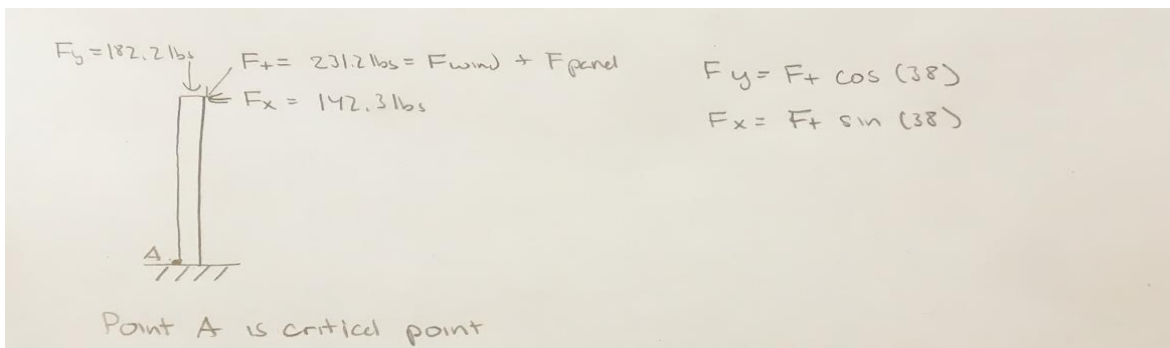 Fy = 182.2 lbs
Ft = 231.2 lbs = Fwind + Fpanel
Fx = 142.3 lbs
Fy = Ft cos (38)
Fx = Ft sin (38)
A
Point A is critical point